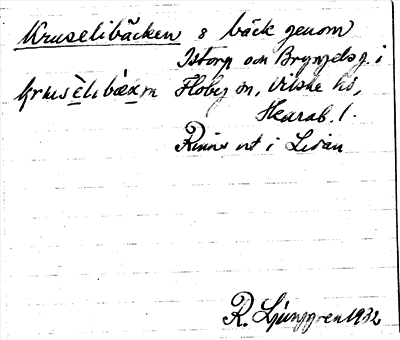 Kruselibäcken s bäck genom
Istorp och Bryngelsg. i
krusèlıbæxın Floby sn, Vilske hd,
Skarab. l.
Rinner ut i Lidan
R. Ljunggren 1932